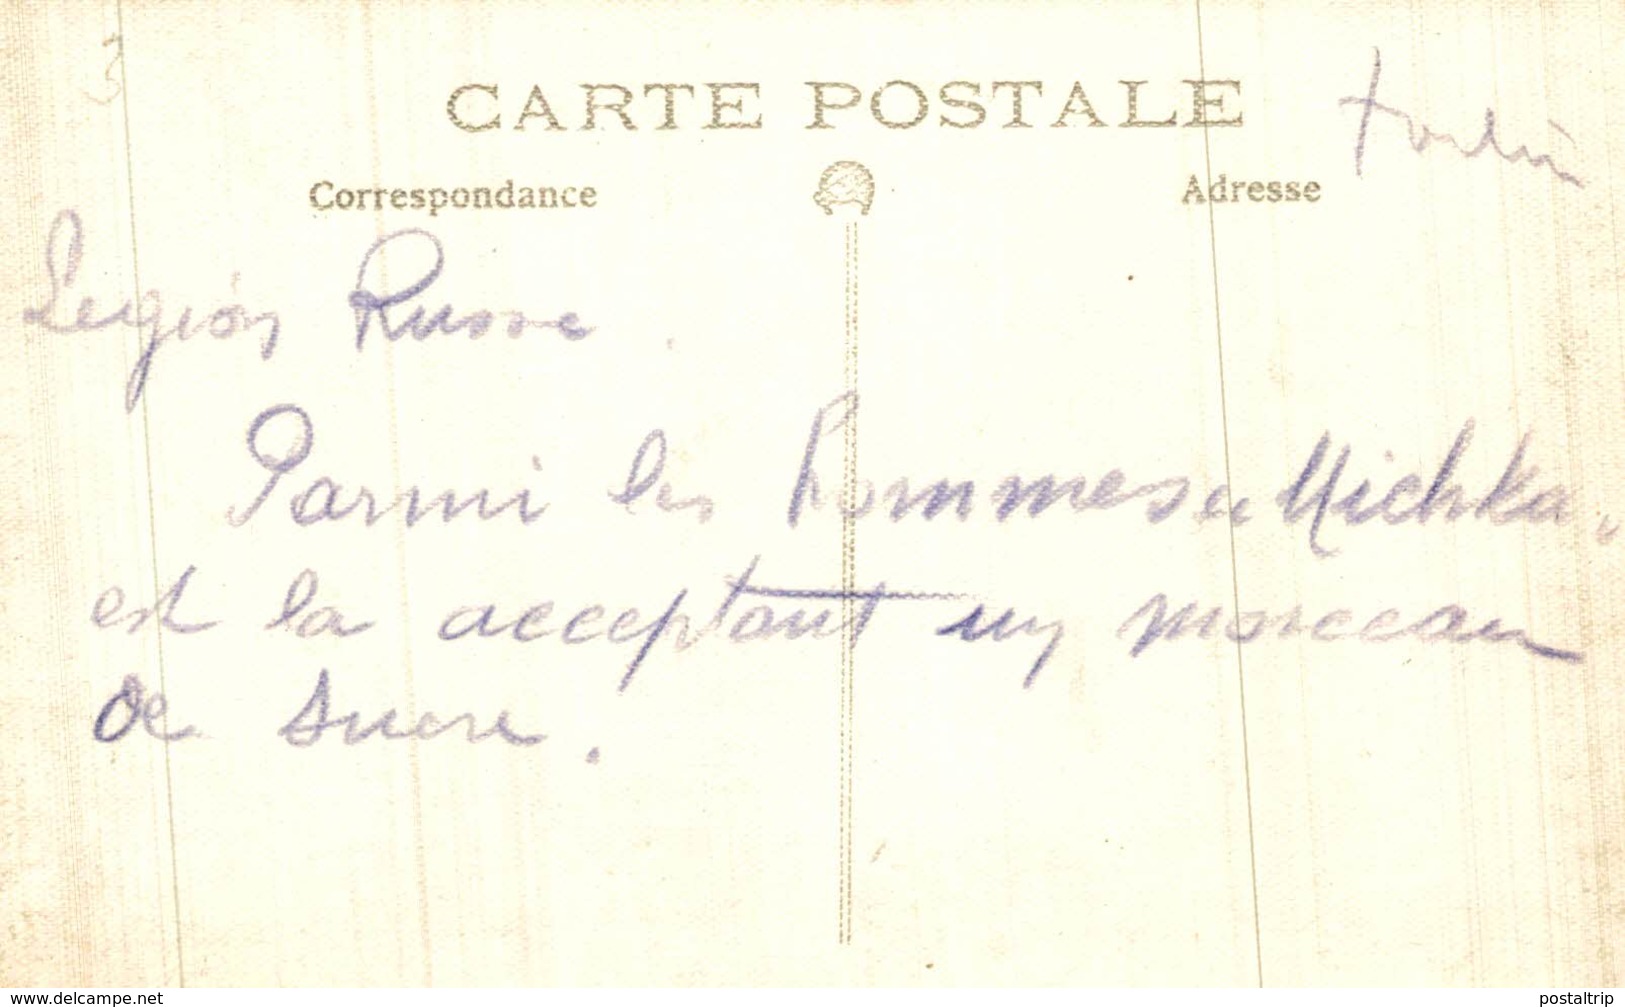 3
CARTE POSTALE
Correspondance
Adresse
Legion Russe.
Parmi les hommes Michka.
est la acceptant un morceau
de sucre.
www.delcampe.net
postaltrip